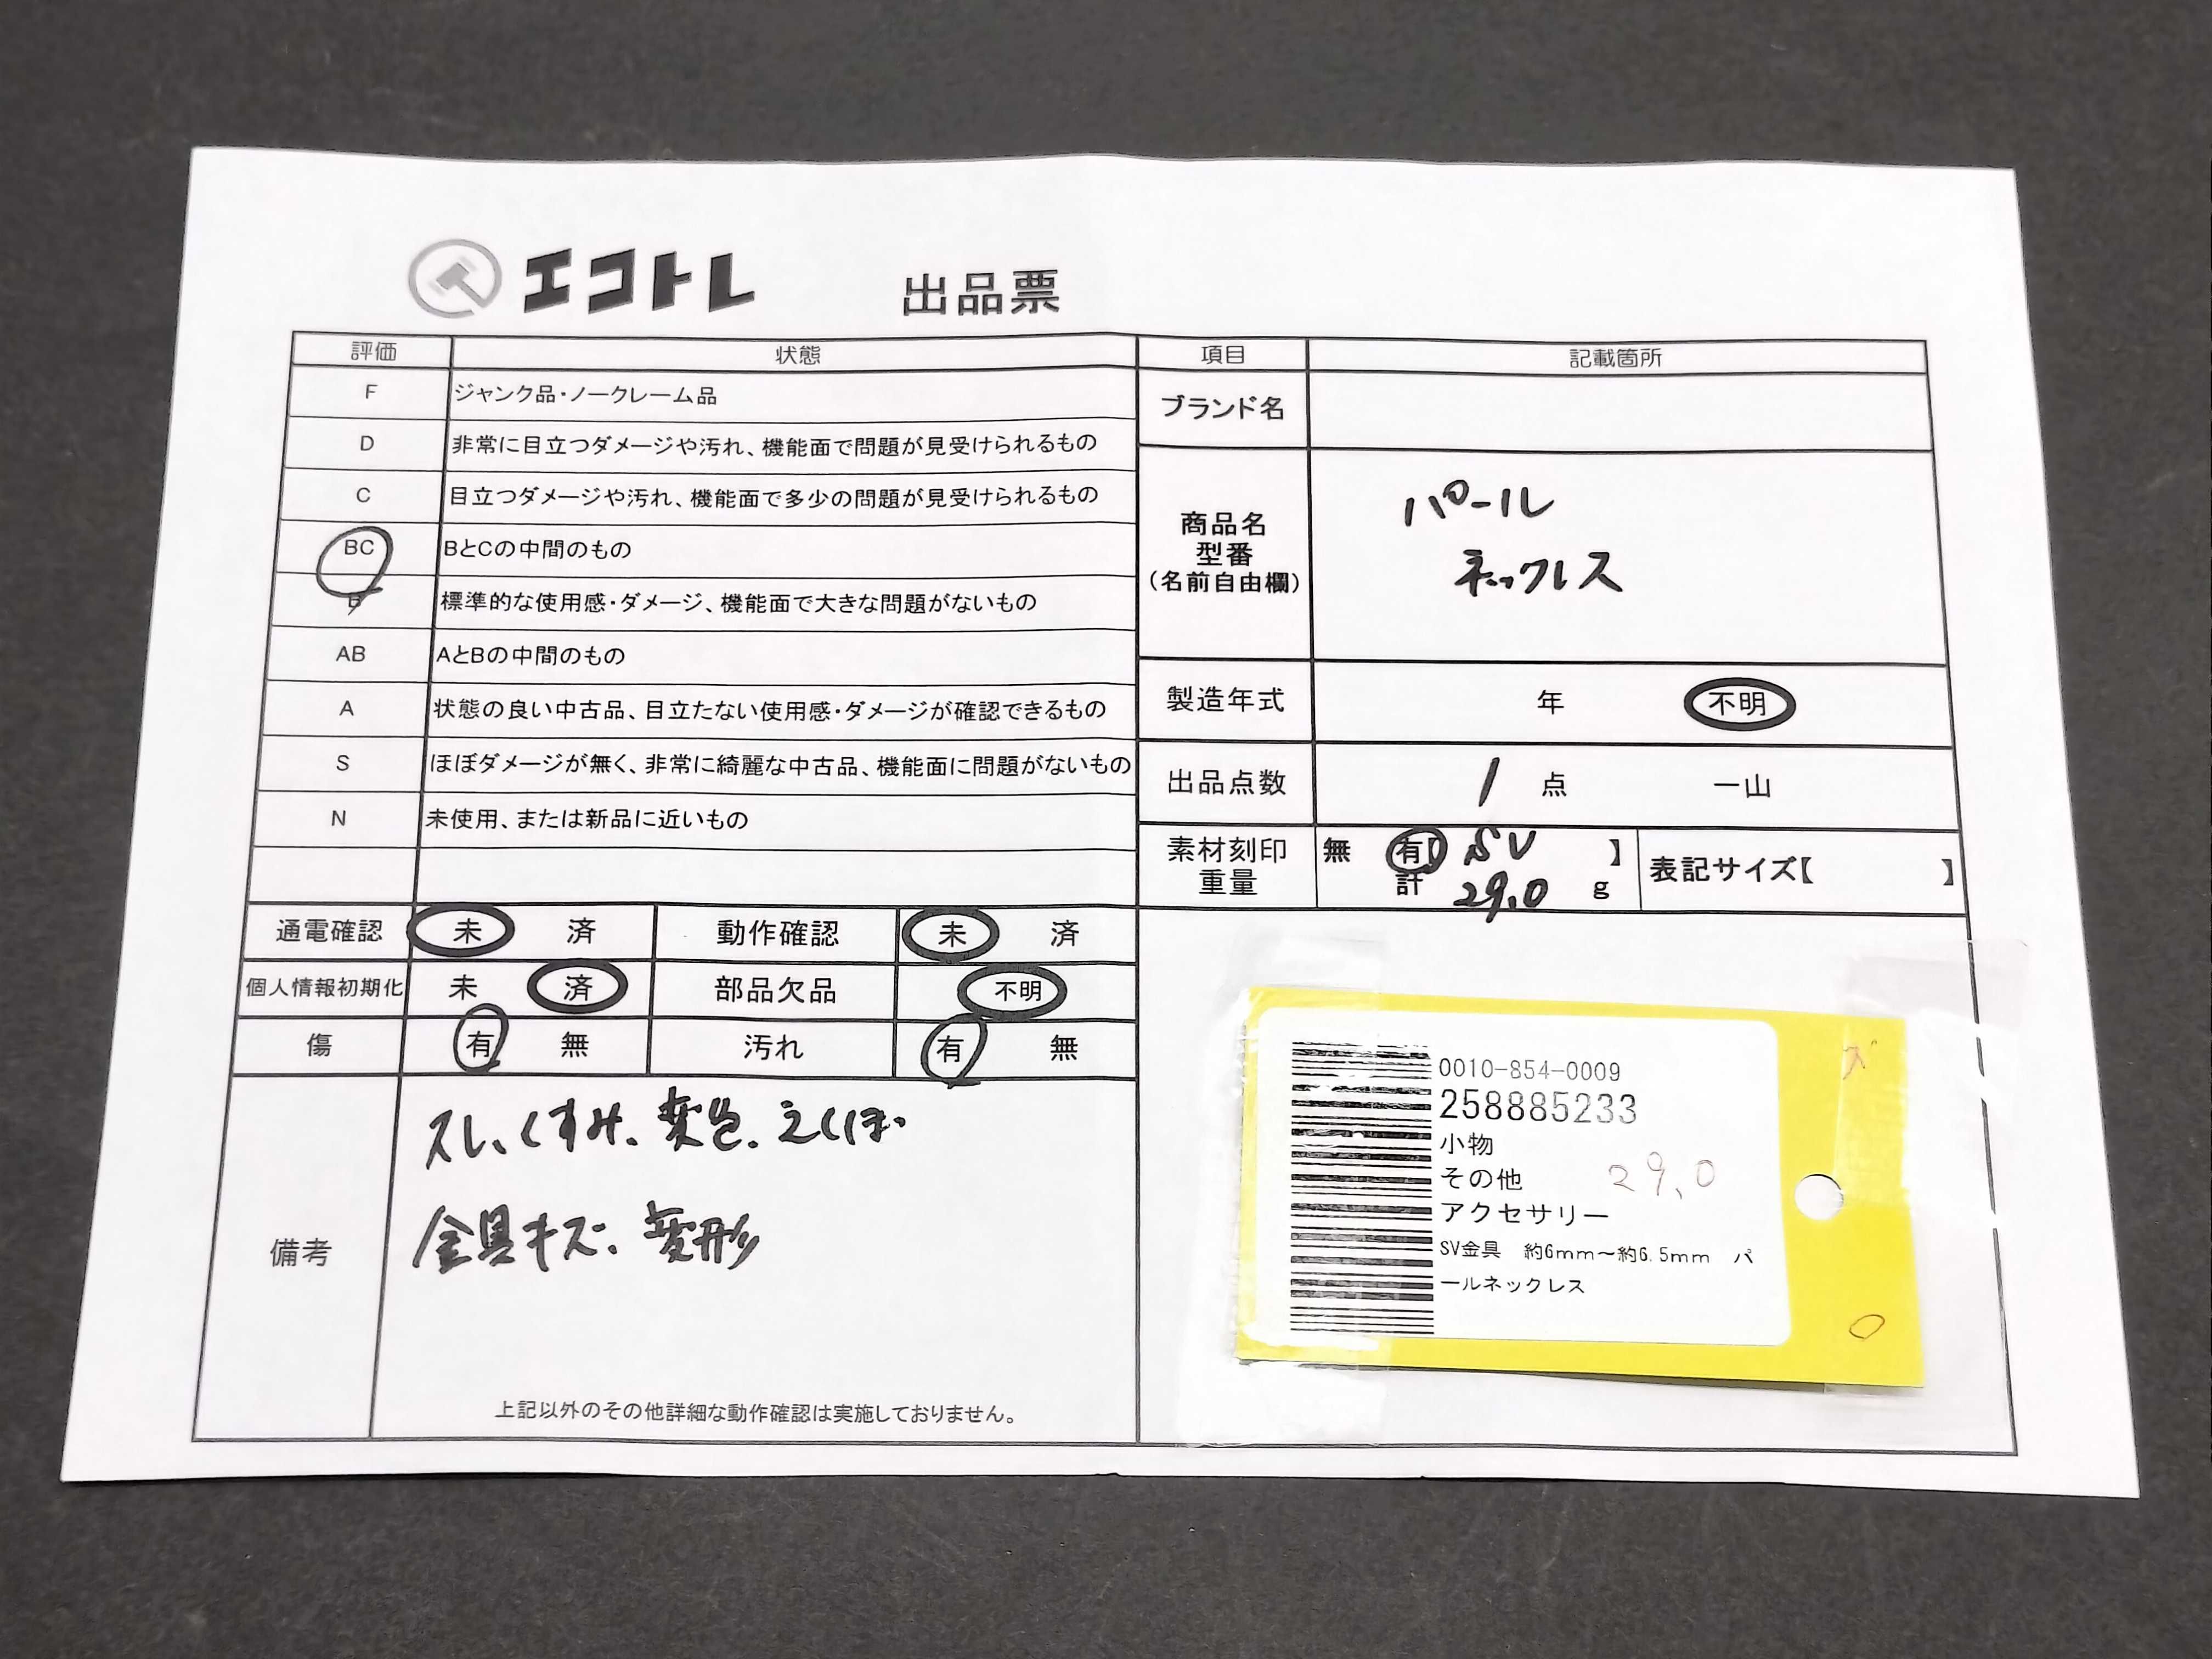 エコトレ 出品票
評価 状態
F ジャンク品・ノークレーム品
D 非常に目立つダメージや汚れ、機能面で問題が見受けられるもの
C 目立つダメージや汚れ、機能面で多少の問題が見受けられるもの
BC BとCの中間のもの
B 標準的な使用感・ダメージ、機能面で大きな問題がないもの
AB AとBの中間のもの
A 状態の良い中古品、目立たない使用感・ダメージが確認できるもの
S ほぼダメージが無く、非常に綺麗な中古品、機能面に問題がないもの
N 未使用、または新品に近いもの
通電確認 未 済 動作確認 未 済
個人情報初期化 未 済 部品欠品 不明
傷 有 無 汚れ 有 無
備考
スレ、くすみ、変色、えくぼ
金具キズ、変形
上記以外のその他詳細な動作確認は実施しておりません。
項目 記載箇所
ブランド名
商品名
型番
(名前自由欄)
パール
ネックレス
製造年式 年 不明
出品点数 1 点 一山
素材刻印 無 有【 SV 】
重量 計 29.0 g
表記サイズ【 】
0010-854-0009
258885233
小物
その他 29.0
アクセサリー
SV金具 約6mm～約6.5mm パ
ールネックレス